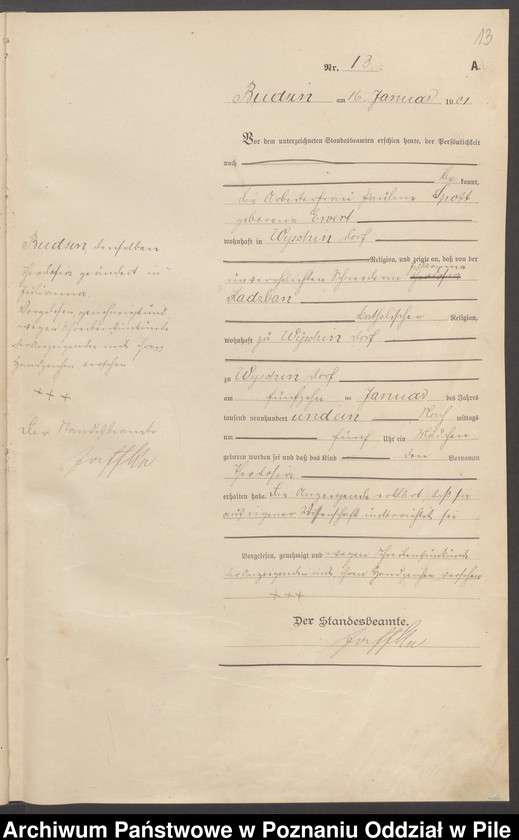 13
Nr. 13. A.
Budsin am 16. Januar 1901
Vor dem unterzeichneten Standesbeamten erschien heute, der Persönlichkeit
nach
be kannt,
die Arbeiterfrau Pauline Spott
geborene Ewert
wohnhaft in Wyschin Dorf
Religion, und zeigte an, daß von der
unverehelichten Schneiderin Julianna Theodosia
Kadzban
katholischer Religion,
wohnhaft zu Wyschin Dorf
zu Wyschin Dorf
am fünfzehn ten Januar des Jahres
tausend neunhundert undein Nach mittags
um fünf Uhr ein Mädchen
geboren worden sei und daß das Kind den Vornamen
Theodosia
erhalten habe. Die Anzeigende erklärt, daß sie
aus eigener Wissenschaft unterrichtet sei
Vorgelesen, genehmigt und wegen Schreibensunkunde
der Anzeigenden mit ihrem Handzeichen versehen
+++
Der Standesbeamte.
Budsin denselben
Theodosia geändert in
Julianna.
Vorgelesen genehmigt und
wegen Schreibensunkunde
der Anzeigenden mit ihrem
Handzeichen versehen
+++
Der Standesbeamte
Archiwum Państwowe w Poznaniu Oddział w Pile